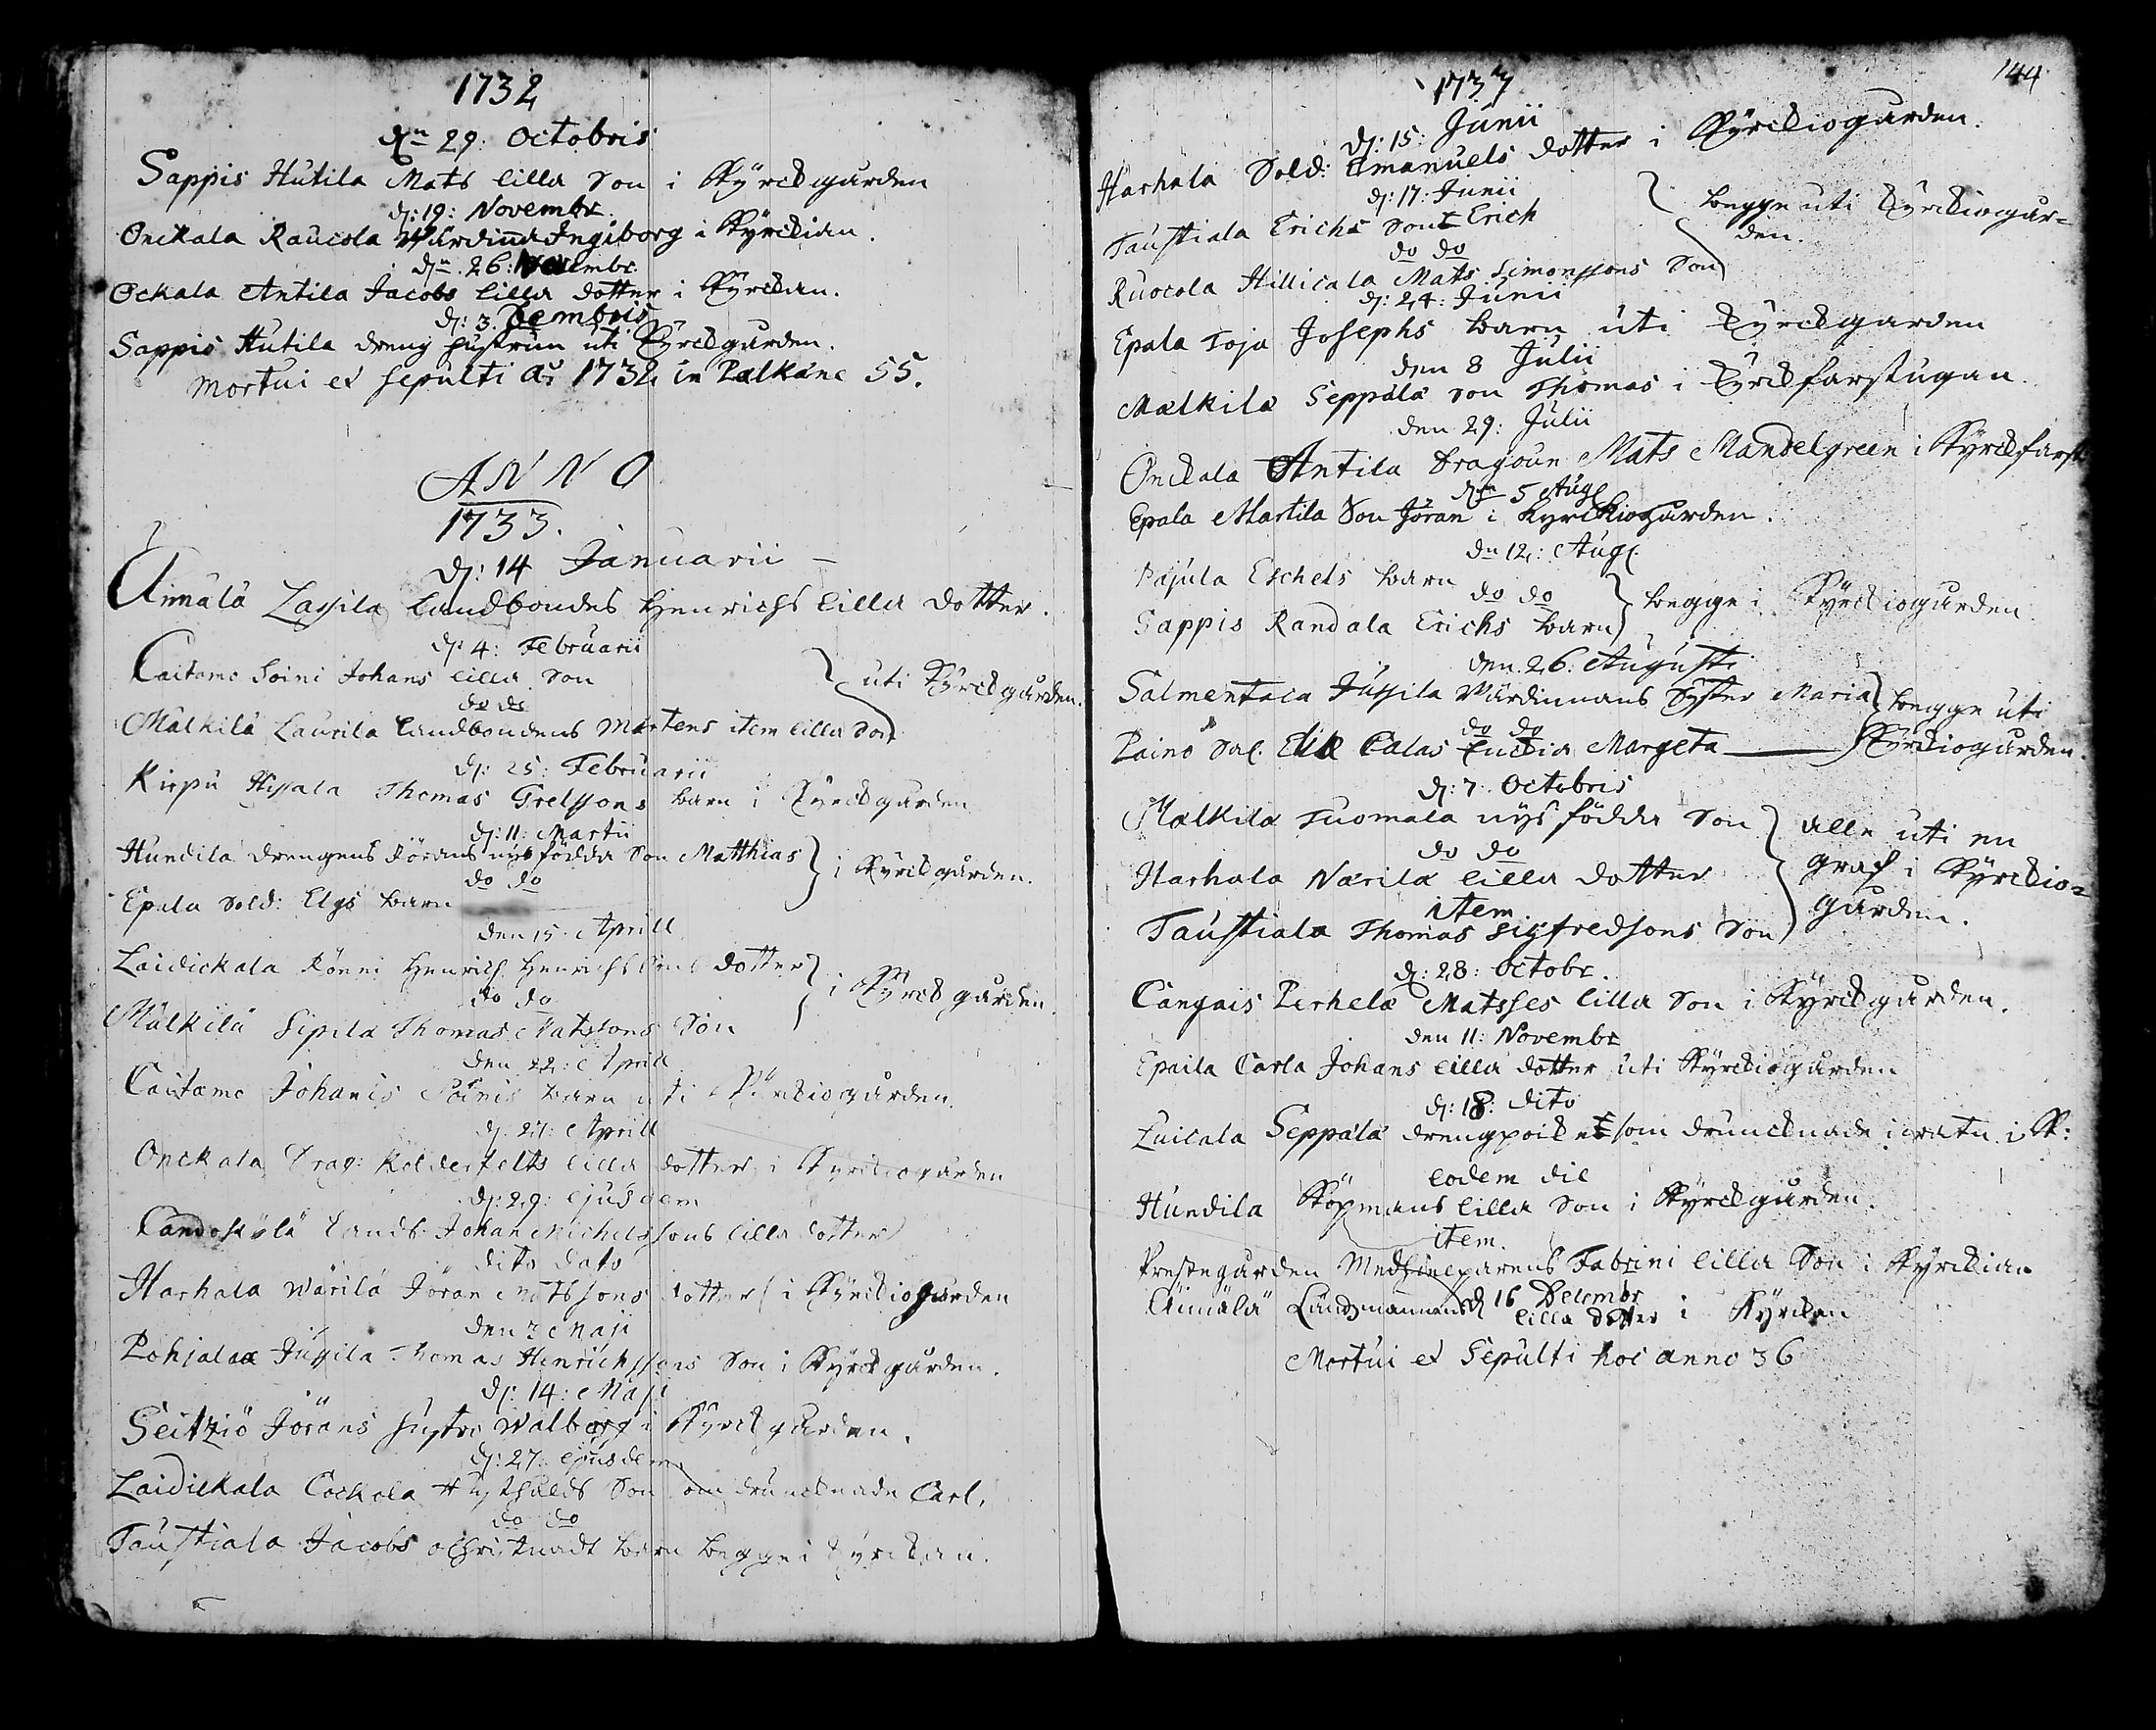 1732
dn 29: Octobris
Sappis Hutila Mats lilla Son i Kyrckgården
d: 19: Novembr.
Onckala Raucola Wärdinna Ingiborg i Kyrckian.
dn. 26: Novembr.
Ockala Antila Jacobs lilla dotter i Kyrckan.
d: 3. Decembris
Sappis Hutila dreng hustrun uti Kyrckgården.
Mortui et sepulti Ao 1732 in Palkäne 55.
ANNO
1733.
d: 14 Januarii
Äimälä Lassila Landbondes Henrichs lilla dotter.
d: 4: Februarii
Caitamo Soini Johans lilla Son
do do
Mälkilä Laurila Landbondens Mårtens item lilla Son
uti Kyrckgården.
d: 25: Februarii
Kirpu Hissala Thomas Grelssons barn i Kyrckgården
d: 11: Martii
Hundila drengens Jörans nysfödda Son Matthias
do do
Epala Sold: Elgs barn
i Kyrckgården.
den 15. Aprill
Laidickala Rönni Henrich Henrichs dotter
do do
Mälkilä Sipilä Thomas Matssons Son
i Kyrckgården.
den 22: Aprill
Caitamo Johanis Soinis barn uti Kyrckiogården.
d: 27: Aprill
Onckala Drag: lilla dotter i Kyrckiogården
d: 29: ejusdem
Landb. Johan Michelssons lilla dotter
dito dato
Harhala Wärilä Jöran Matssons dotter i Kyrckiogården
den 3 Maji
Pohjala Jussila Thomas Henrichssons Son i Kyrckgården.
d: 14: Maji
Seitziö Jörans hustro Walborg i Kyrckgården.
d: 27: ejusdem
Laidickala Cockola Son som drunknade Carl,
do do
Taustiala Jacobs ochristnadt barn begge i Kyrckan.
144
1733
d: 15: Junii
Harhala Sold: Emanuels dotter i Kyrckiogården.
d: 17: Junii
Taustiala Erichs Son Erich
do do
Ruocola Hillicala Mats Simonssons Son
begge uti Kyrckiogår=
den.
d: 24: Junii
Epala Toja Josephs barn uti Kyrckgården
den 8 Julii
Mælkila Seppälä Son Thomas i Kyrckfarstugan.
den 29: Julii
Onckala Antila Dragoun Mats Mandelgreen i Kyrckfarst
dn 5 Aug.
Epala Martila Son Jöran i Kyrckiogården.
dn 12: Aug.
Pajula Eschels barn
do do
Sappis Randala Erichs barn
begge i Kyrckiogården
den 26: Augusti
Salmentaca Jussila Wärdinnans Syster Maria
do do
Paino Sal. Margeta
begge uti
Kyrckiogården.
d: 7: Octobris
Mälkilä Tuomala nys födda Son
do do
Harhala Närilä lilla dotter
item
Taustiala Thomas Sigfredsons Son
alle uti en
graf i Kyrckio=
gården.
d: 28: Octobr.
Cangais Perhela Matsses lilla Son i Kyrckgården.
den 11: Novembr
Epaila Carla Johans lilla dotter uti Kyrckiogården
d: 18: dito
Luicala Seppälä drengpoick som drunknade i watn i K:
eodem die
Hundila Köpmans lilla Son i Kyrckgården.
item.
Prestegården Fabrini lilla Son i Kyrckian
d 16 Decembr
Äimälä Länsmannens lilla dotter i Kyrckan
Mortui et Sepulti hoc anno 36